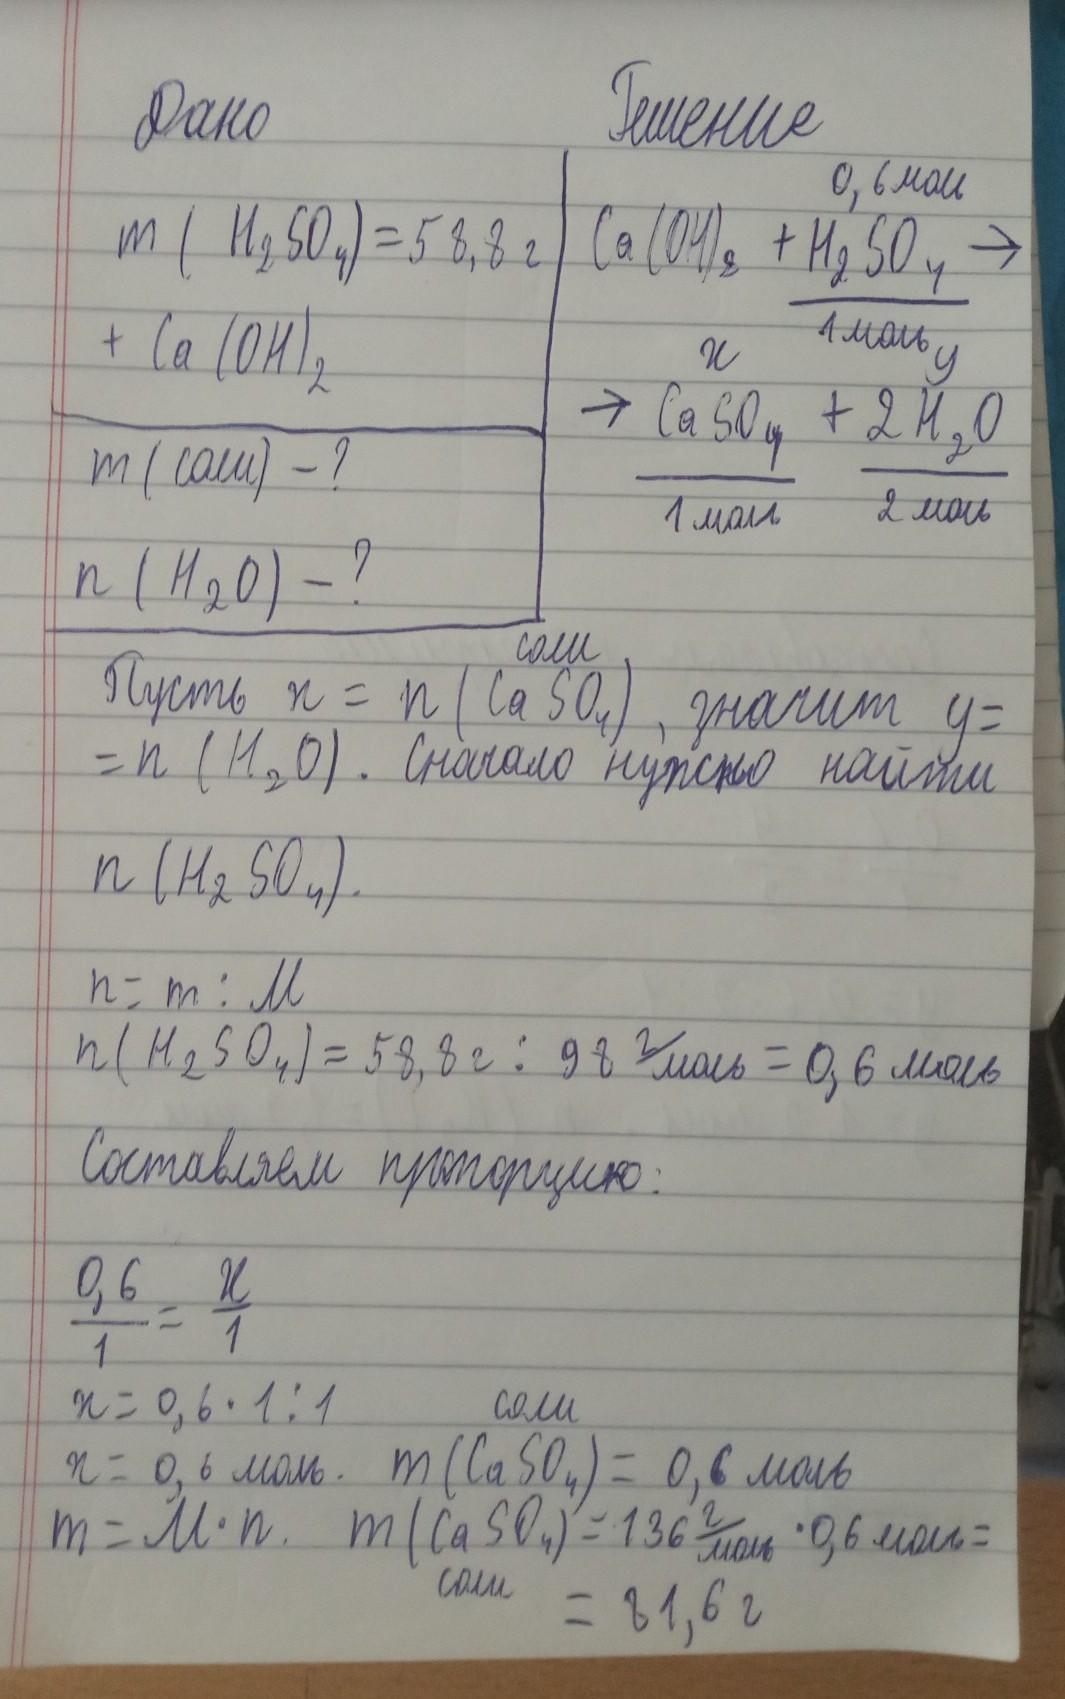 Дано
m ( H₂SO₄) = 58,8 г
+ Ca (OH)₂
m (соли) - ?
n ( H₂O) - ?
Решение
0,6 моль
Ca(OH)₂ + H₂SO₄ →
1 моль
x y
→ CaSO₄ + 2H₂O
1 моль 2 моль
соли
Пусть x = n (CaSO₄), значит y=
= n (H₂O). Сначало нужно найти
n (H₂SO₄).
n = m : M
n(H₂SO₄) = 58,8 г : 98 г/моль = 0,6 моль
Составляем пропорцию:
0,6/1 = x/1
x = 0,6 · 1 : 1
соли
x = 0,6 моль. m(CaSO₄) = 0,6 моль
m = M · n. m(CaSO₄) = 136 г/моль · 0,6 моль =
соли
= 81,6 г